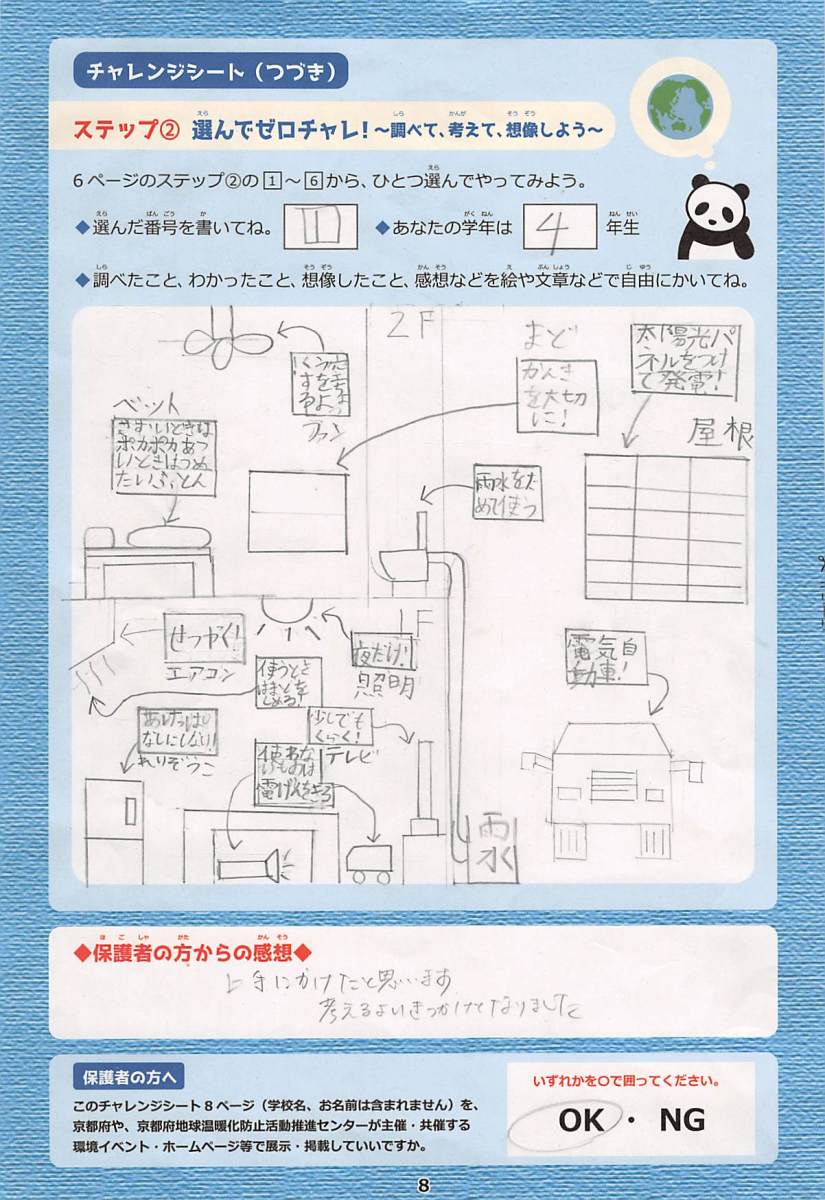 チャレンジシート(つづき)
ステップ② 選んでゼロチャレ!~調べて、考えて、想像しよう~
6ページのステップ②の1~6から、ひとつ選んでやってみよう。
◆選んだ番号を書いてね。
◆あなたの学年は 4 年生
◆調べたこと、わかったこと、想像したこと、感想などを絵や文章などで自由にかいてね。
2F
ファン
まど
かんき
を大切
に!
太陽光パ
ネルをつけ
て発電!
屋根
ベット
さむいときは
ポカポカあつ
いときはつめ
たいふとん
雨水をた
めて使う
1F
せつやく!
エアコン
使うとき
はまどを
しめる!
夜だけ!
照明
電気自
動車!
あけっぱし
なしにしない!
れいぞうこ
少しでも
くらく!
テレビ
使わな
いものは
電げんをきる
雨
水
◆保護者の方からの感想◆
上手にかけたと思います
考えるよいきっかけとなりました
保護者の方へ
このチャレンジシート8ページ(学校名、お名前は含まれません)を、
京都府や、京都府地球温暖化防止活動推進センターが主催・共催する
環境イベント・ホームページ等で展示・掲載していいですか。
いずれかを○で囲ってください。
OK・NG
8